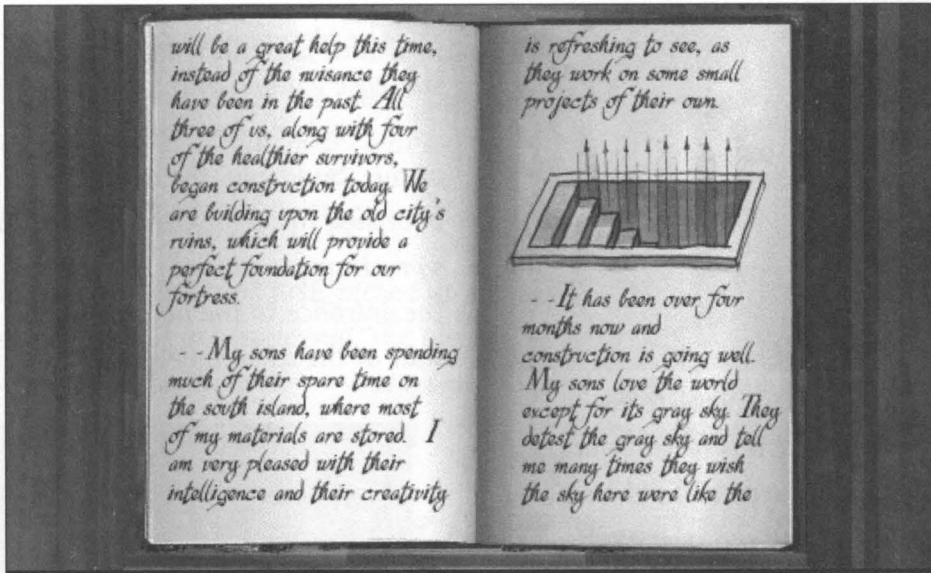 will be a great help this time,
instead of the nuisance they
have been in the past. All
three of us, along with four
of the healthier survivors,
began construction today. We
are building upon the old city's
ruins, which will provide a
perfect foundation for our
fortress.
- - My sons have been spending
much of their spare time on
the south island, where most
of my materials are stored. I
am very pleased with their
intelligence and their creativity
is refreshing to see, as
they work on some small
projects of their own.
- - It has been over four
months now and
construction is going well.
My sons love the world
except for its gray sky. They
detest the gray sky and tell
me many times they wish
the sky here were like the